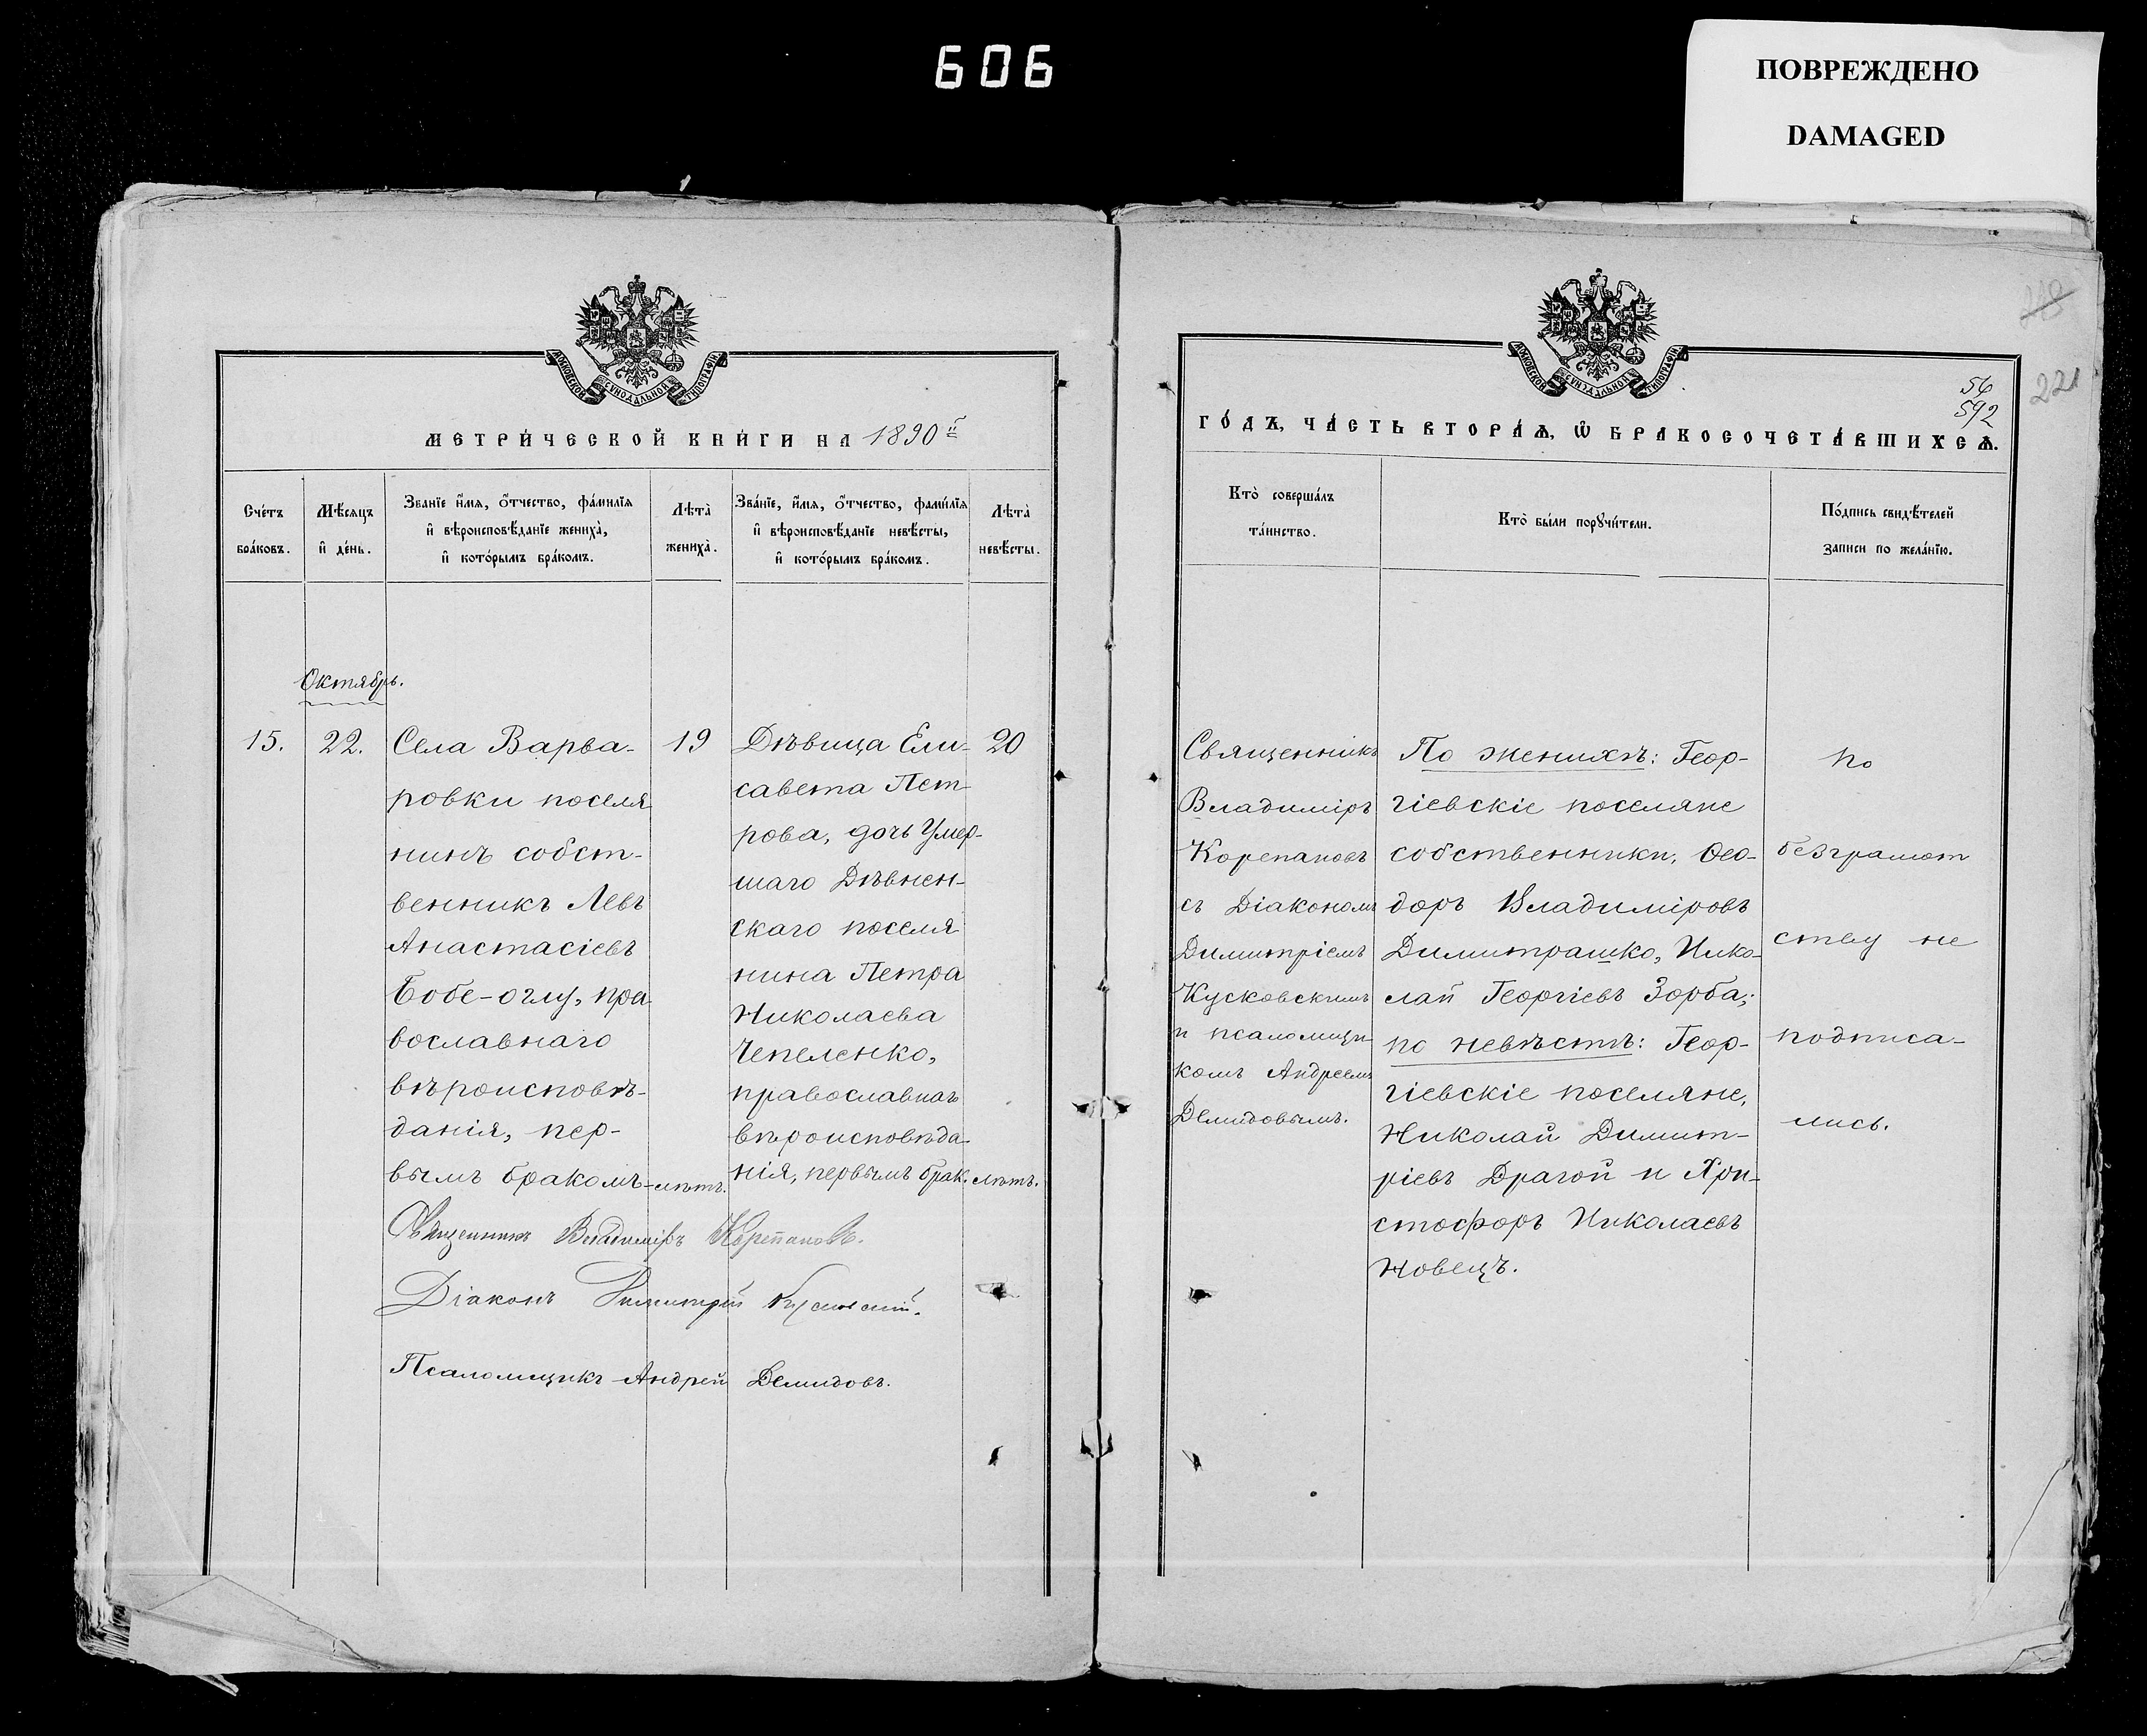 606
ПОВРЕЖДЕНО
DAMAGED
МОСКОВСКОЙ СУНОДАЛЬНОЙ ТИПОГРАФІИ
МЕТРИЧЕСКОЙ КНИГИ НА 1890й
Счетъ браковъ.
Мѣсяцъ и день.
Званіе, имя, отчество, фамилія
и вѣроисповѣданіе жениха,
и которымъ бракомъ.
Лѣта жениха.
Званіе, имя, отчество, фамилія
и вѣроисповѣданіе невѣсты,
и которымъ бракомъ.
Лѣта невѣсты.
Октябрь.
15.
22.
Села Варва-
ровки поселя
нинъ собст-
венникъ Левъ
Анастасіевъ
Бобе-оглу, пра
вославнаго
вѣроисповѣ-
данія, пер-
вымъ бракомъ
19
лѣтъ.
Дѣвица Ели-
савета Пет-
рова, дочь умер-
шаго Дѣвнен-
скаго поселя
нина Петра
Николаева
Чепеленко,
православнаго
вѣроисповѣда-
нія, первымъ брак.
20
лѣтъ.
Священникъ Владиміръ Корепановъ.
Діаконъ Димитрій Кусковскій.
Псаломщикъ Андрей Демидовъ.
МОСКОВСКОЙ СУНОДАЛЬНОЙ ТИПОГРАФІИ
56
592
221
ГОДЪ, ЧАСТЬ ВТОРАЯ, Ѡ БРАКОСОЧЕТАВШИХСЯ.
Кто совершалъ
таинство.
Кто были поручители.
Подпись свидѣтелей
записи по желанію.
Священникъ
Владиміръ
Корепановъ
съ Діакономъ
Димитріемъ
Кусковскимъ
и псаломщи
комъ Андреемъ
Демидовымъ.
По женихѣ: Геор-
гіевскіе поселяне
собственники, Ѳео-
доръ Владиміровъ
Димитрашко, Нико-
лай Георгіевъ Зорба;
по невѣстѣ: Геор-
гіевскіе поселяне,
Николай Димит-
ріевъ Драгой и Хри-
стофоръ Николаевъ
Новецъ.
по
безграмот
ству не
подписа-
лись.